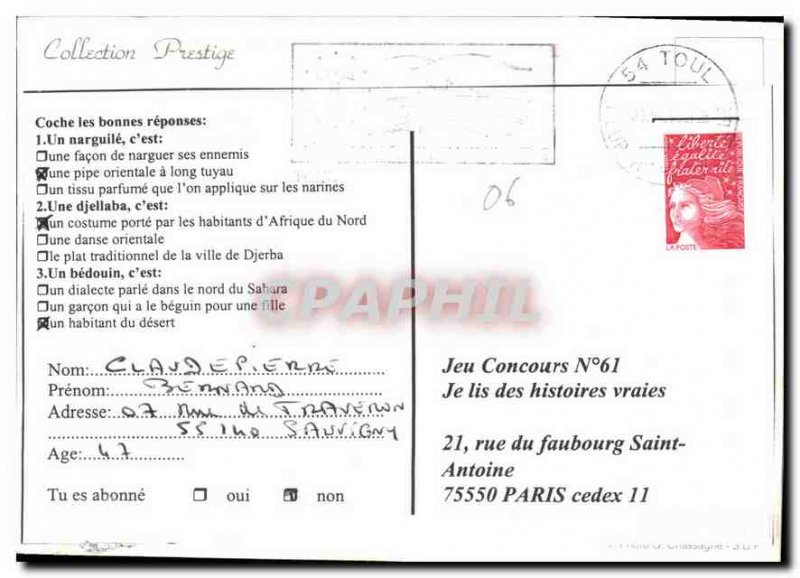 Collection Prestige
54 TOUL
Coche les bonnes réponses:
1.Un narguilé, c'est:
une façon de narguer ses ennemis
une pipe orientale à long tuyau
un tissu parfumé que l'on applique sur les narines
2.Une djellaba, c'est:
un costume porté par les habitants d'Afrique du Nord
une danse orientale
le plat traditionnel de la ville de Djerba
3.Un bédouin, c'est:
un dialecte parlé dans le nord du Sahara
un garçon qui a le béguin pour une fille
un habitant du désert
Nom: CLAUDEPIERRE
Prénom: BERNARD
Adresse: 07 rue de TRAVERON
55140 SAUVIGNY
Age: 47
Tu es abonné oui non
06
liberté
égalité
fraternité
LA POSTE
CPAPHIL
Jeu Concours N°61
Je lis des histoires vraies
21, rue du faubourg Saint-
Antoine
75550 PARIS cedex 11